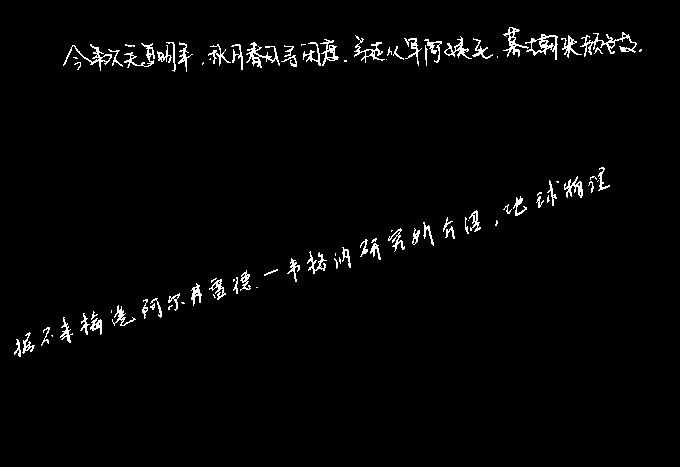 今年欢笑复明年,秋月春风等闲度.弟走从军阿姨死.暮去朝来颜色故.
据不来梅港阿尔弗雷德.一韦格纳研究所介绍,地球物理